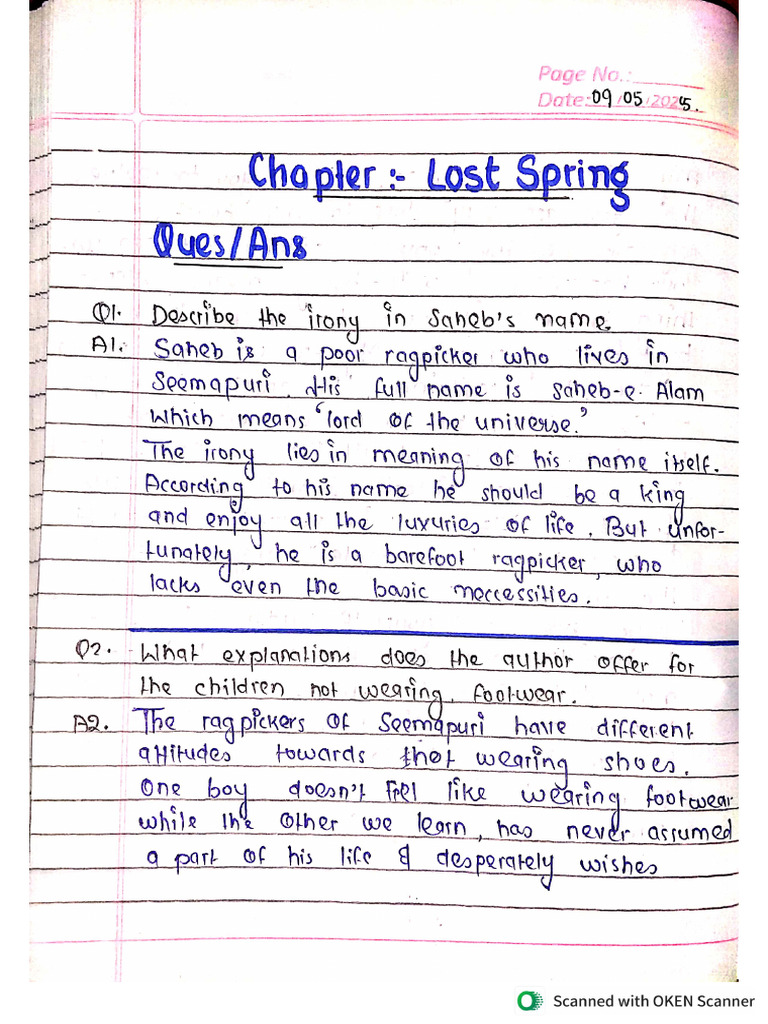 Page No.:
Date: 09/05/2025.
Chapter :- Lost Spring
Ques/Ans
Q1. Describe the irony in Saheb's name.
A1. Saheb is a poor ragpicker who lives in
Seemapuri. His full name is Saheb-e-Alam
which means "lord of the universe."
The irony lies in meaning of his name itself.
According to his name he should be a king
and enjoy all the luxuries of life. But unfor-
tunately, he is a barefoot ragpicker, who
lacks even the basic neccessities.
Q2. What explanations does the author offer for
the children not wearing footwear.
A2. The ragpickers of Seemapuri have different
attitudes towards wearing shoes.
One boy doesn't feel like wearing footwear
while the other we learn, has never assumed
a part of his life & desperately wishes
Scanned with OKEN Scanner